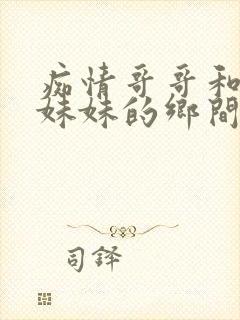 痴情哥哥和
妹妹的鄉間
司鐸